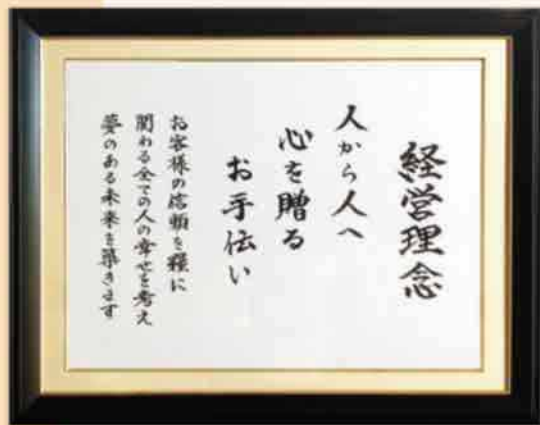 経営理念
人から人へ
心を贈る
お手伝い
お客様の信頼を糧に
関わる全ての人の幸せを考え
夢のある未来を築きます